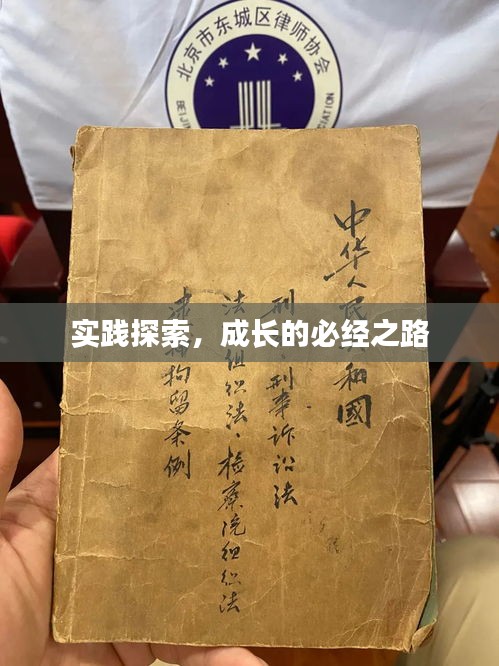 北京市东城区律师协会
BEIJI
IATION
实践探索，成长的必经之路
中华人民 和國
刑、刑事诉讼法
法 组织法、检察院组织法
逮捕拘留条例